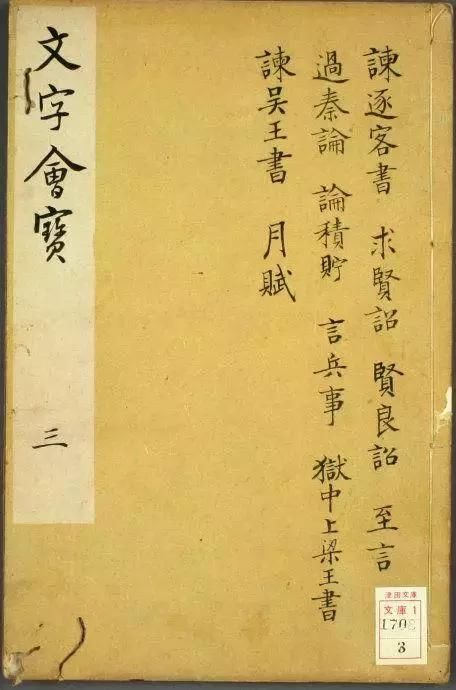 諫逐客書 求賢詔 賢良詔 至言
過秦論 論積貯 言兵事 獄中上梁王書
諫吴王書 月賦
文字會寶
三
文庫1
3